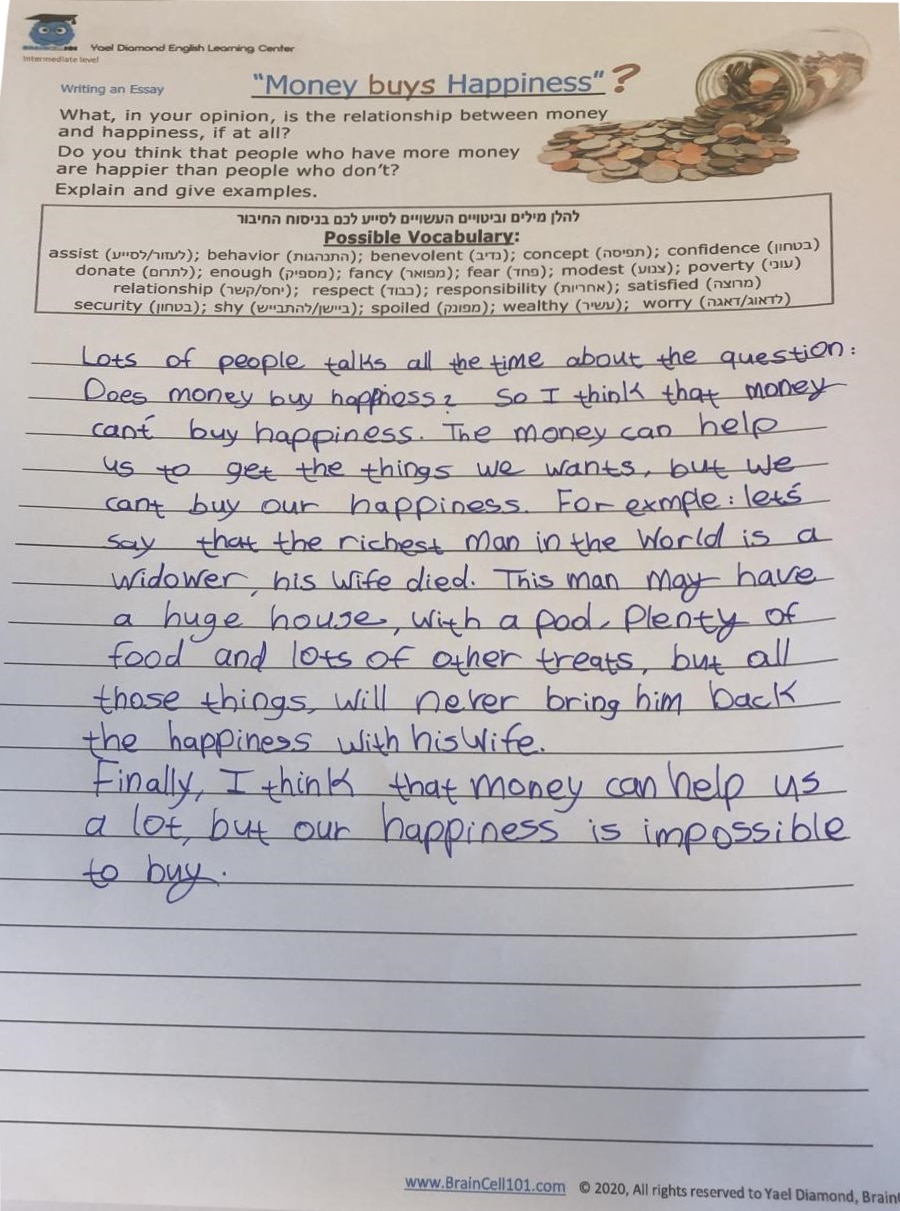 BRAINCELL101
Yael Diamond English Learning Center
Intermediate level
Writing an Essay
"Money buys Happiness"?
What, in your opinion, is the relationship between money
and happiness, if at all?
Do you think that people who have more money
are happier than people who don't?
Explain and give examples.
להלן מילים וביטויים העשויים לסייע לכם בניסוח החיבור
Possible Vocabulary:
assist (לעזור/לסייע); behavior (התנהגות); benevolent (נדיב); concept (תפיסה); confidence (בטחון)
donate (לתרום); enough (מספיק); fancy (מפואר); fear (פחד); modest (צנוע); poverty (עוני)
relationship (יחס/קשר); respect (כבוד); responsibility (אחריות); satisfied (מרוצה)
security (בטחון); shy (ביישן/להתבייש); spoiled (מפונק); wealthy (עשיר); worry (לדאוג/דאגה)
Lots of people talks all the time about the question:
Does money buy happiness? So I think that money
can't buy happiness. The money can help
us to get the things we wants, but we
can't buy our happiness. For exmple: let's
say that the richest man in the World is a
widower, his wife died. This man may have
a huge house, with a pool, Plenty of
food and lots of other treats, but all
those things, will never bring him back
the happiness with his wife.
Finally, I think that money can help us
a lot, but our happiness is impossible
to buy.
www.BrainCell101.com © 2020, All rights reserved to Yael Diamond, Brain